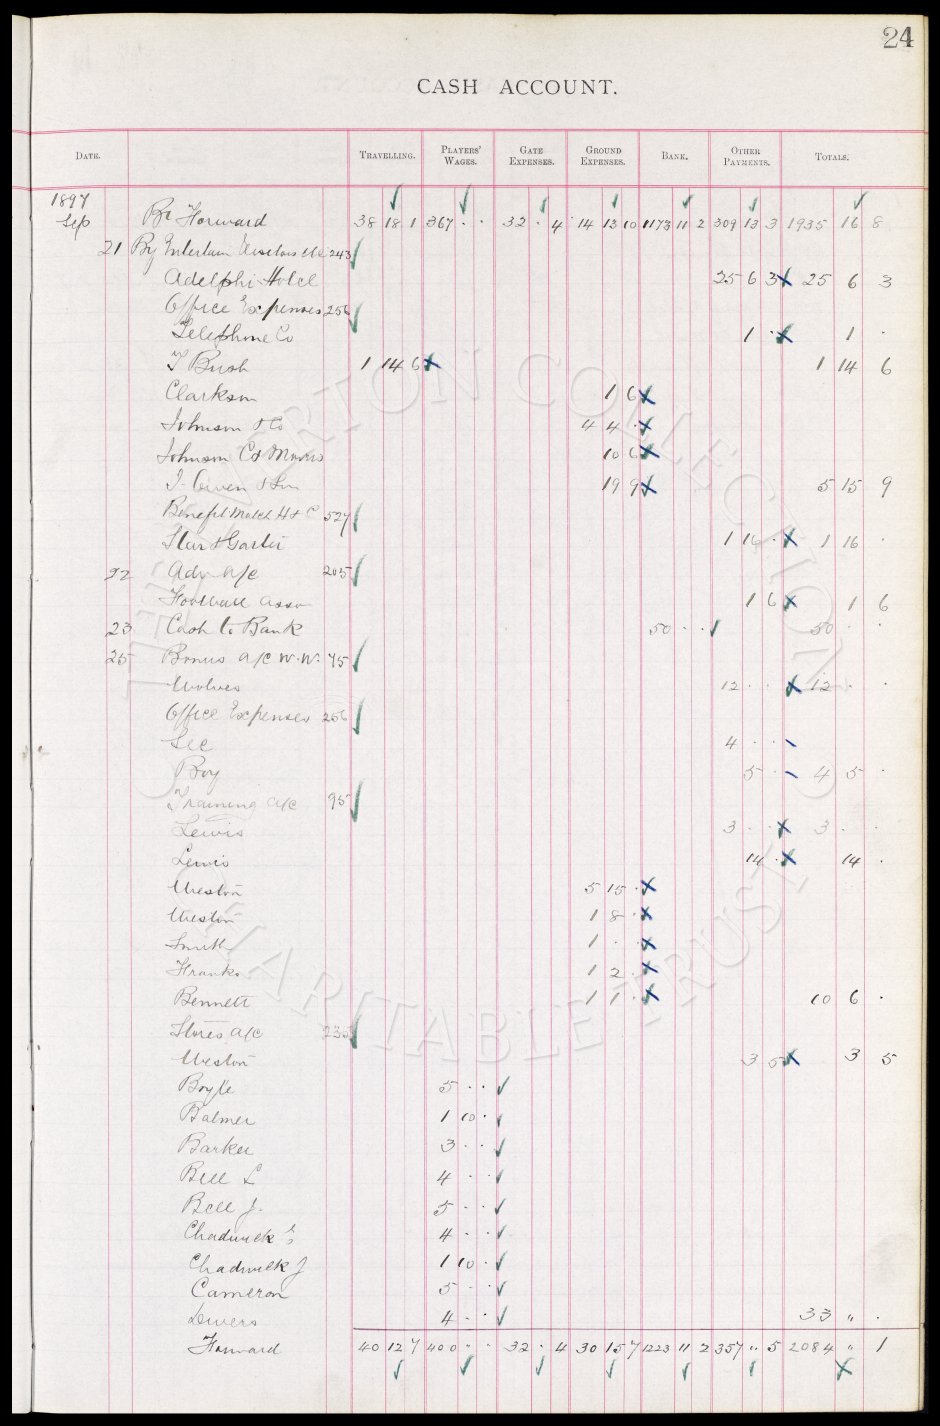 24
CASH ACCOUNT.
DATE. TRAVELLING. PLAYERS' WAGES. GATE EXPENSES. GROUND EXPENSES. BANK. OTHER PAYMENTS. TOTALS.
1897
Sep Bt Forward 38 18 1 367 · · 32 · 4 14 13 10 1173 11 2 309 13 3 1935 16 8
21 By Entertain Visitors 243
Adelphi Hotel 25 6 3 25 6 3
Office Expenses 256
Telephone Co 1 · 1 ·
T Bush 1 14 6 1 14 6
Clarkson 1 6
Johnson & Co 4 4 ·
Johnson 10 6
J. Owen & Son 19 9 5 15 9
Benefit Match 527
Star & Garter 1 16 · 1 16 ·
22 Adv a/c 205
Football Assn 1 6 1 6
23 Cash to Bank 50 · · 50 · ·
25 Bonus a/c W.W. 75
Wolves 12 · · 12 · ·
Office Expenses 256
Sec 4 · ·
Boy 5 · 4 5 ·
Training a/c 95
Lewis 3 · · 3 · ·
Lewis 14 · 14 ·
Weston 5 15 ·
Weston 1 8 ·
Smith 1 · ·
Franks 1 2 ·
Bennett 1 1 · 10 6 ·
Stores a/c 235
Weston 3 5 3 5
Boyle 5 · ·
Balmer 1 10 ·
Barker 3 · ·
Bell L 4 · ·
Bell J. 5 · ·
Chadwick E 4 · ·
Chadwick J 1 10 ·
Cameron 5 · ·
Divers 4 · · 33 " ·
Forward 40 12 7 400 · · 32 · 4 30 15 7 1223 11 2 357 " 5 2084 " 1
THE EVERTON COLLECTION
CHARITABLE TRUST